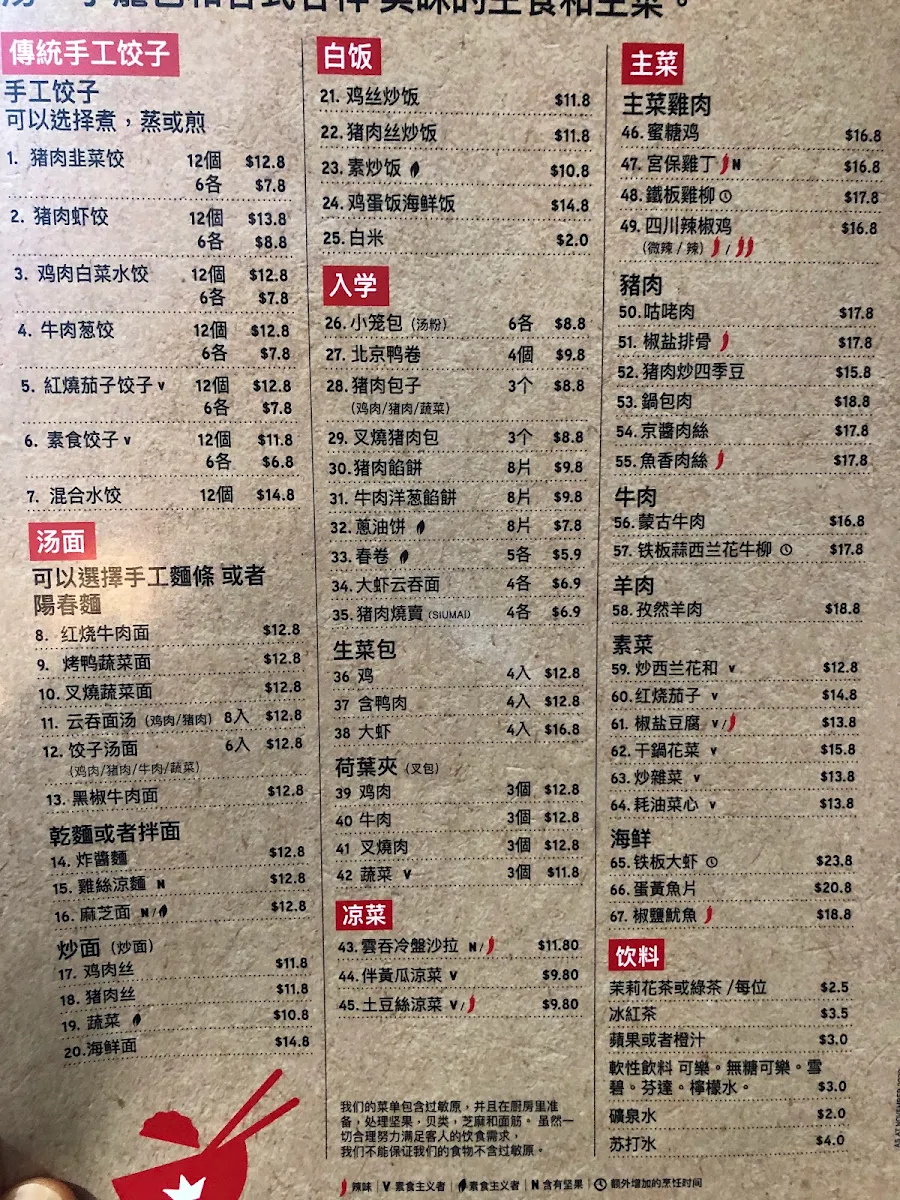 小籠包和台式各种 美味的主食和主菜。
傳統手工饺子
手工饺子
可以选择煮，蒸或煎
1. 猪肉韭菜饺 12個 $12.8
6各 $7.8
2. 猪肉虾饺 12個 $13.8
6各 $8.8
3. 鸡肉白菜水饺 12個 $12.8
6各 $7.8
4. 牛肉葱饺 12個 $12.8
6各 $7.8
5. 紅燒茄子饺子 V 12個 $12.8
6各 $7.8
6. 素食饺子 V 12個 $11.8
6各 $6.8
7. 混合水饺 12個 $14.8
汤面
可以選擇手工麵條 或者
陽春麵
8. 红烧牛肉面 $12.8
9. 烤鸭蔬菜面 $12.8
10. 叉燒蔬菜面 $12.8
11. 云吞面汤 (鸡肉/猪肉) 8入 $12.8
12. 饺子汤面 6入 $12.8
(鸡肉/猪肉/牛肉/蔬菜)
13. 黑椒牛肉面 $12.8
乾麵或者拌面
14. 炸醬麵 $12.8
15. 雞絲涼麵 N $12.8
16. 麻芝面 N/ $12.8
炒面 (炒面)
17. 鸡肉丝 $11.8
18. 猪肉丝 $11.8
19. 蔬菜 $10.8
20. 海鲜面 $14.8
白饭
21. 鸡丝炒饭 $11.8
22. 猪肉丝炒饭 $11.8
23. 素炒饭 $10.8
24. 鸡蛋饭海鲜饭 $14.8
25. 白米 $2.0
入学
26. 小笼包 (汤粉) 6各 $8.8
27. 北京鸭卷 4個 $9.8
28. 猪肉包子 3个 $8.8
(鸡肉/猪肉/蔬菜)
29. 叉燒猪肉包 3个 $8.8
30. 猪肉餡餅 8片 $9.8
31. 牛肉洋葱餡餅 8片 $9.8
32. 蔥油饼 8片 $7.8
33. 春卷 5各 $5.9
34. 大虾云吞面 4各 $6.9
35. 猪肉燒賣 (SIUMAI) 4各 $6.9
生菜包
36 鸡 4入 $12.8
37 含鸭肉 4入 $12.8
38 大虾 4入 $16.8
荷葉夾 (叉包)
39 鸡肉 3個 $12.8
40 牛肉 3個 $12.8
41 叉燒肉 3個 $12.8
42 蔬菜 V 3個 $11.8
凉菜
43. 雲吞冷盤沙拉 N/ $11.80
44. 伴黃瓜涼菜 V $9.80
45. 土豆絲涼菜 V/ $9.80
我们的菜单包含过敏原，并且在厨房里准
备，处理坚果，贝类，芝麻和面筋。 虽然一
切合理努力满足客人的饮食需求，
我们不能保证我们的食物不含过敏原。
辣味 | V 素食主义者 | 素食主义者 | N 含有坚果 | 额外增加的烹饪时间
主菜
主菜雞肉
46. 蜜糖鸡 $16.8
47. 宮保雞丁 N $16.8
48. 鐵板雞柳 $17.8
49. 四川辣椒鸡 $16.8
(微辣 / 辣) /
豬肉
50. 咕咾肉 $17.8
51. 椒盐排骨 $17.8
52. 猪肉炒四季豆 $15.8
53. 鍋包肉 $18.8
54. 京醬肉絲 $17.8
55. 魚香肉絲 $17.8
牛肉
56. 蒙古牛肉 $16.8
57. 铁板蒜西兰花牛柳 $17.8
羊肉
58. 孜然羊肉 $18.8
素菜
59. 炒西兰花和 V $12.8
60. 红烧茄子 V $14.8
61. 椒盐豆腐 V/ $13.8
62. 干鍋花菜 V $15.8
63. 炒雜菜 V $13.8
64. 耗油菜心 V $13.8
海鮮
65. 铁板大虾 $23.8
66. 蛋黃魚片 $20.8
67. 椒鹽魷魚 $18.8
饮料
茉莉花茶或綠茶 /每位 $2.5
冰紅茶 $3.5
蘋果或者橙汁 $3.0
軟性飲料 可樂。無糖可樂。雪
碧。芬達。檸檬水。 $3.0
礦泉水 $2.0
苏打水 $4.0